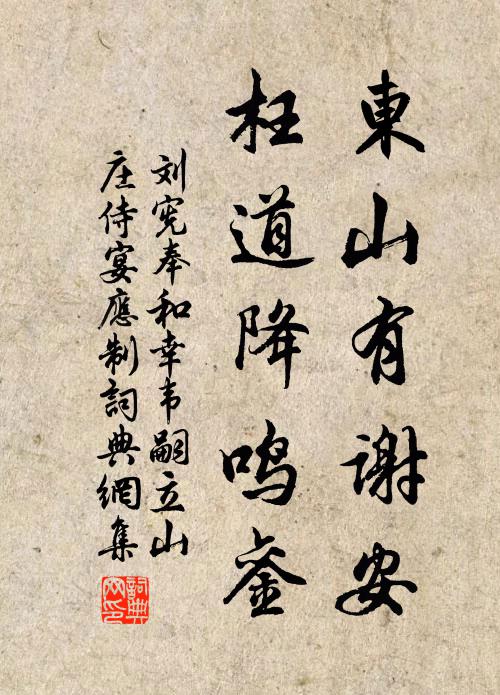 東山有谢安
枉道降鸣銮
刘宪奉和幸韦嗣立山
庄侍宴應制詞典網集